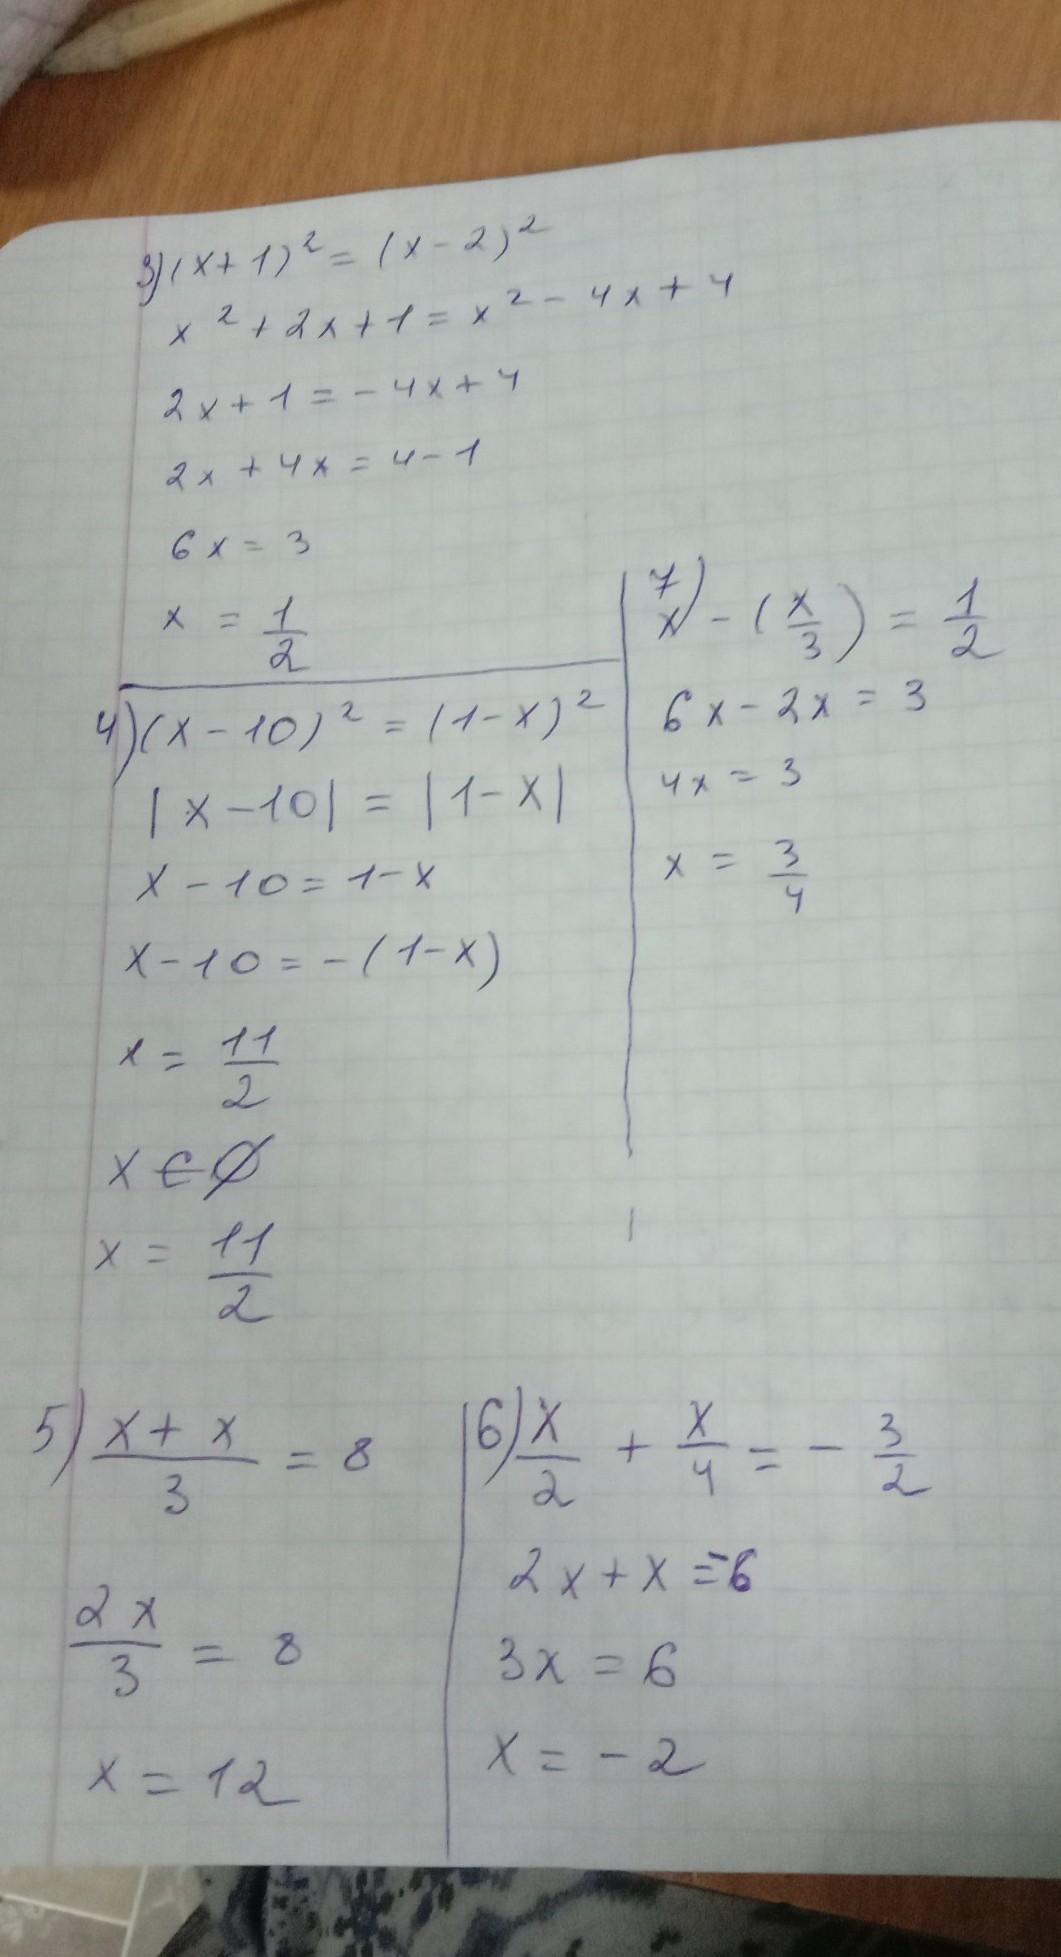 3) (x+1)² = (x-2)²
x² + 2x + 1 = x² - 4x + 4
2x + 1 = - 4x + 4
2x + 4x = 4 - 1
6x = 3
x = 1/2
4) (x - 10)² = (1 - x)²
|x - 10| = |1 - x|
x - 10 = 1 - x
x - 10 = - (1 - x)
x = 11/2
x ∈ ∅
x = 11/2
7) x - (x/3) = 1/2
6x - 2x = 3
4x = 3
x = 3/4
5) (x + x)/3 = 8
2x/3 = 8
x = 12
6) x/2 + x/4 = - 3/2
2x + x = -6
3x = 6
x = - 2